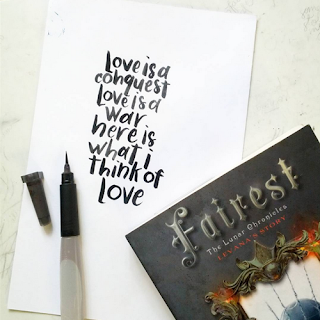 Love is a
conquest
Love is a
war
here is
what i
think of
Love
Fairest
The Lunar Chronicles
LEVANA'S STORY